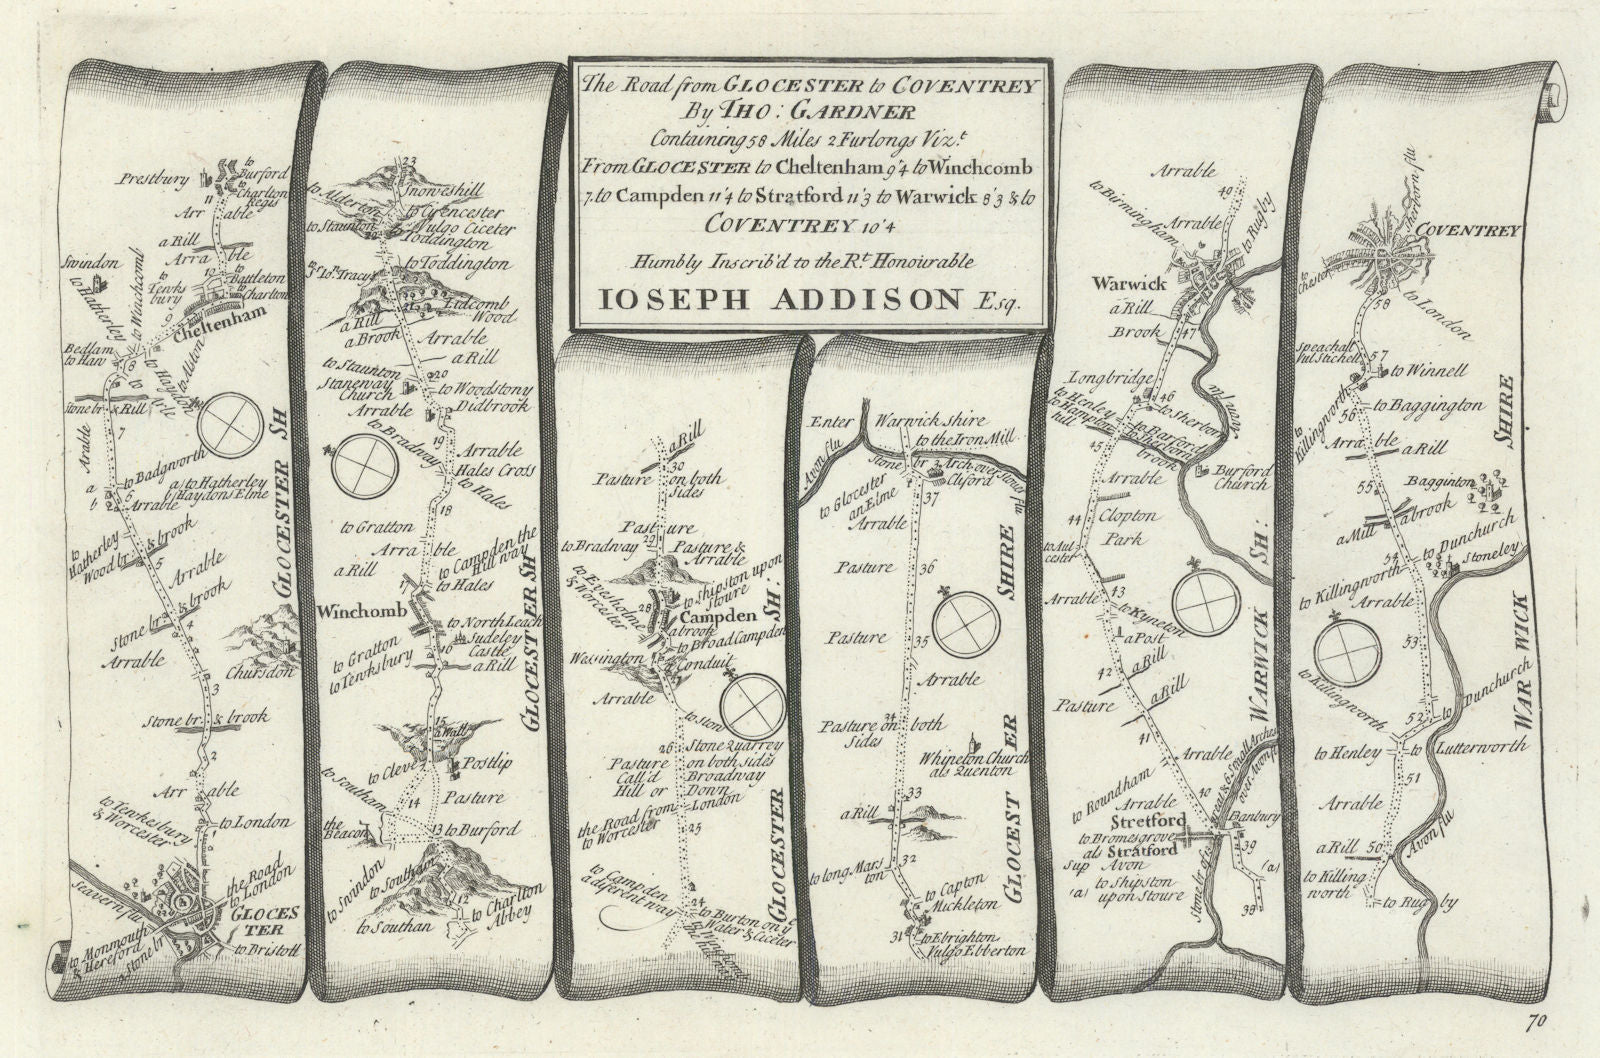 The Road from GLOCESTER to COVENTREY
By THO: GARDNER
Containing 58 Miles 2 Furlongs Viz.t
From GLOCESTER to Cheltenham 9'4 to Winchcomb
7. to Campden 11'4 to Stratford 11'3 to Warwick 8'3 & to
COVENTREY 10'4
Humbly Inscrib'd to the R.t Honourable
IOSEPH ADDISON Esq.
Prestbury
to
Burford
to
Charlton
Regis
11
Arr able
a Rill
Arra ble
Swindon
to Hatherley
to Winchcomb
10
to
Tewks
bury
to
Battleton
to
Charlton
Cheltenham
Bedlam
to Haw
to
Arle
to Haydon
to Alston
8
Stone br. & Rill
7
Arable
to Badgworth
a to Hatherley
b Haydons Elme
a
b
6
Arrable
to
Hatherley
Wood br. & brook
5
Arrable
Stone br. & brook
4
Arrable
Chursdon
3
Stone br. & brook
2
Arr able
to Tewkesbury
& Worcester
1
to London
the Road
to London
Seavern flu
GLOCES
TER
to Monmouth
& Hereford
a Stone br
to Bristoll
GLOCESTER SH
23
Snoweshill
to Alderton
to Cyrencester
Vulgo Ciceter
to Staunton
Toddington
22
to Toddington
to
Tracy
21
Lidcomb
Wood
a Rill
a Brook
Arrable
a Rill
to Staunton
Staneway
Church
20
to Woodstony
Didbrook
Arrable
to Bradway
19
Arrable
Hales Cross
to Hales
18
to Gratton
Arra ble
a Rill
to Campden the
Hill way
to Hales
17
Winchomb
to North Leach
Sudeley
Castle
to Gratton
to Tewksbury
16
a Rill
15
a Well
to Cleve
Postlip
to Southam
14
Pasture
the
Beacon
13
to Burford
to Swindon
to Southam
12
to Southan
to Charlton
Abbey
GLOCESTER SH
a Rill
30
Pasture
on both
sides
Pasture
to Bradway
29
Pasture &
Arrable
to Evesholme
& Worcester
to Shipston upon
Stoure
28
Campden
a brook
to Broad Campden
Wessington
a Conduit
Arrable
to Ston
26
Stone Quarrey
on both sides
Pasture
Call'd
Hill or
Broadway
Down
the Road from
to Worcester
London
25
to Campden
a diferent way
24
to Burton on y.e
Water & Ciceter
GLOCESTER SH:
Enter Warwick shire
to the Iron Mill
Avon flu
Stone br
2 Arch over Stour flu
Cliford
to Glocester
an Elme
37
Arrable
Pasture
36
Pasture
35
Arrable
34
Pasture on both
Sides
Whineton Church
als Quenton
33
a Rill
32
to long Mars
ton
to Capton
Mickleton
31
to Ebrighton
Vulgo Ebberton
GLOCEST ER SHIRE
Arrable
to Birmingham
48
Arrable
to Rugby
Warwick
a Rill
Brook
47
Longbridge
to Henley
to Hampton
hill
46
to Sherborn
Avon flu
45
to Barford
Sherford
brook
Burford
Church
Arrable
44
Clopton
Park
to Aul
cester
Arrable
43
to Kyneton
a Post
a Rill
42
a Rill
Pasture
41
Arrable
to Roundham
Arrable
40
Stretford
to Bromesgrove
als Stratford
Sup Avon
(a) to Shipston
upon Stoure
Great & 6 small Arches
over Avon flu
Banbury
39
(a)
38
Stone br
WARWICK SH:
COVENTREY
Sharborn flu
to
Chester
58
to London
speachall
Vul Stichell
57
to Winnell
to
Killingworth
56
to Baggington
Arra ble
a Rill
55
Bagginton
a Mill
a brook
54
to Dunchurch
Stoneley
to Killingworth
Arrable
53
to Killingworth
52
to Dunchurch
to Henley
to Lutterworth
51
Arrable
a Rill
50
Avon flu
to Killing
worth
to Rug by
WAR WICK SHIRE
70